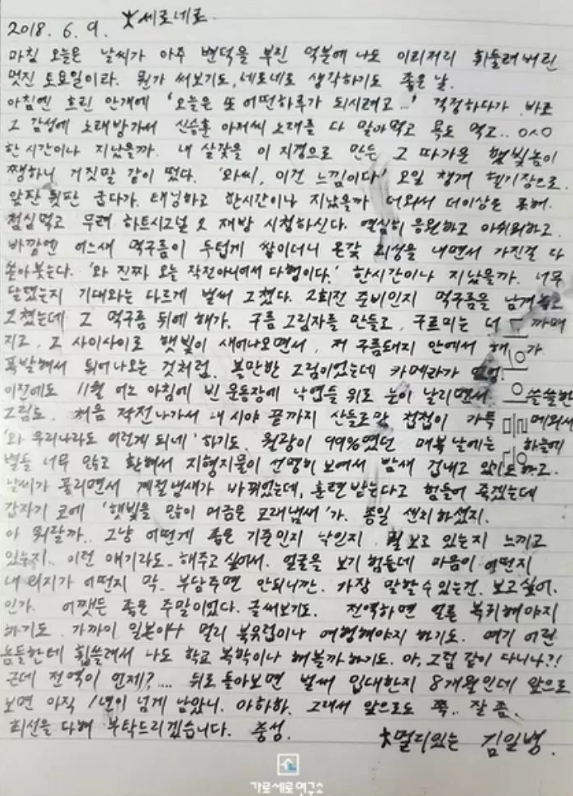 2018. 6. 9. 세로네로.
마침 오늘은 날씨가 아주 변덕을 부린 덕분에 나도 이리저리 휘둘려버린
멋진 토요일이라. 뭔가 써보기도, 네로네로 생각하기도 좋은 날.
아침엔 흐린 안개에 '오늘은 또 어떤하루가 되시려고..' 걱정하다가 바로
그 감성에 노래방가서 신승훈 아저씨 노래를 다 잡아먹고 목도 먹고.. ㅇㅅㅇ
한시간이나 지났을까. 내 살갗을 이 지경으로 만든 그 따가운 햇빛놈이
쨍하니 거짓말 같이 떴다. '와씨, 이건 느낌이다' 오일 챙겨 헬기장으로.
앞판 뒷판 굽다가. 태닝하고 한시간이나 지났을까 더워서 더이상은 못해.
점심먹고 무려 하트시그널 2 재방 시청하신다. 열심히 응원하고 아쉬워하고.
바깥엔 어느새 먹구름이 두텁게 쌓이더니 온갖 괴성을 내면서 가진걸 다
쏟아붓는다. '와 진짜 오늘 작전아니어서 다행이다.' 한시간이나 지났을까. 너무
달렸는지 기대와는 다르게 벌써 그쳤다. 2회전 준비인지 먹구름을 남겨놓고
그쳤는데 그 먹구름 뒤에 해가. 구름 그림자를 만들고, 구르미는 더 까매
지고. 그 사이사이로 햇빛이 새어나오면서, 저 구름돼지 안에서 해가
폭발해서 튀어나오는 것처럼. 볼만한 그림이었는데 카메라가 없넹.
이전에도 11월 어느 아침에 빈 운동장에 낙엽들 위로 눈이 날리면서 쓸쓸한
그림도. 처음 작전나가서 내 시야 끝까지 산들로만 첩첩이 가득 메워서
'와 우리나라도 이런게 되네' 하기도. 월광이 99%였던 매복 날에는 하늘에
별들 너무 많고 환해서 지형지물이 선명히 보여서 밤새 겁내고 있기도하고.
날씨가 풀리면서 계절냄새가 바뀌었는데, 훈련 받는다고 힘들어 죽겠는데
갑자기 코에 '햇빛을 많이 머금은 모래냄새'가. 종일 센치하셨지.
아 뭐랄까.. 그냥 어떻게 좁은 기준인지 낙인지 뭘 보고 있는지 느끼고
있는지.. 이런 얘기라도.. 해주고 싶어서. 얼굴을 보기 힘든데 마음이 어떤지
내 의지가 어떤지 막.. 부담주면 안되니깐. 가장 말할수 있는건. 보고싶어.
인가. 어쨌든 좁은 주말이었다. 글써보기도. 전역하면 얼른 복귀해야지
하기도. 가까이 일본이나 멀리 북유럽이나 여행해야지 하기도. 여기 어린
놈들한테 휩쓸려서 나도 학교 복학이나 해볼까하기도. 아, 그럼 같이 다니나?!
근데 전역이 언제?.... 뒤로 돌아보면 벌써 입대한지 8개월인데 앞으로
보면 아직 1년이 넘게 남았니. 아하하. 그래서 앞으로도 쭉.. 잘 좀.
최선을 다해 부탁드리겠습니다. 충성.
멀리있는 김일병.
가로세로연구소